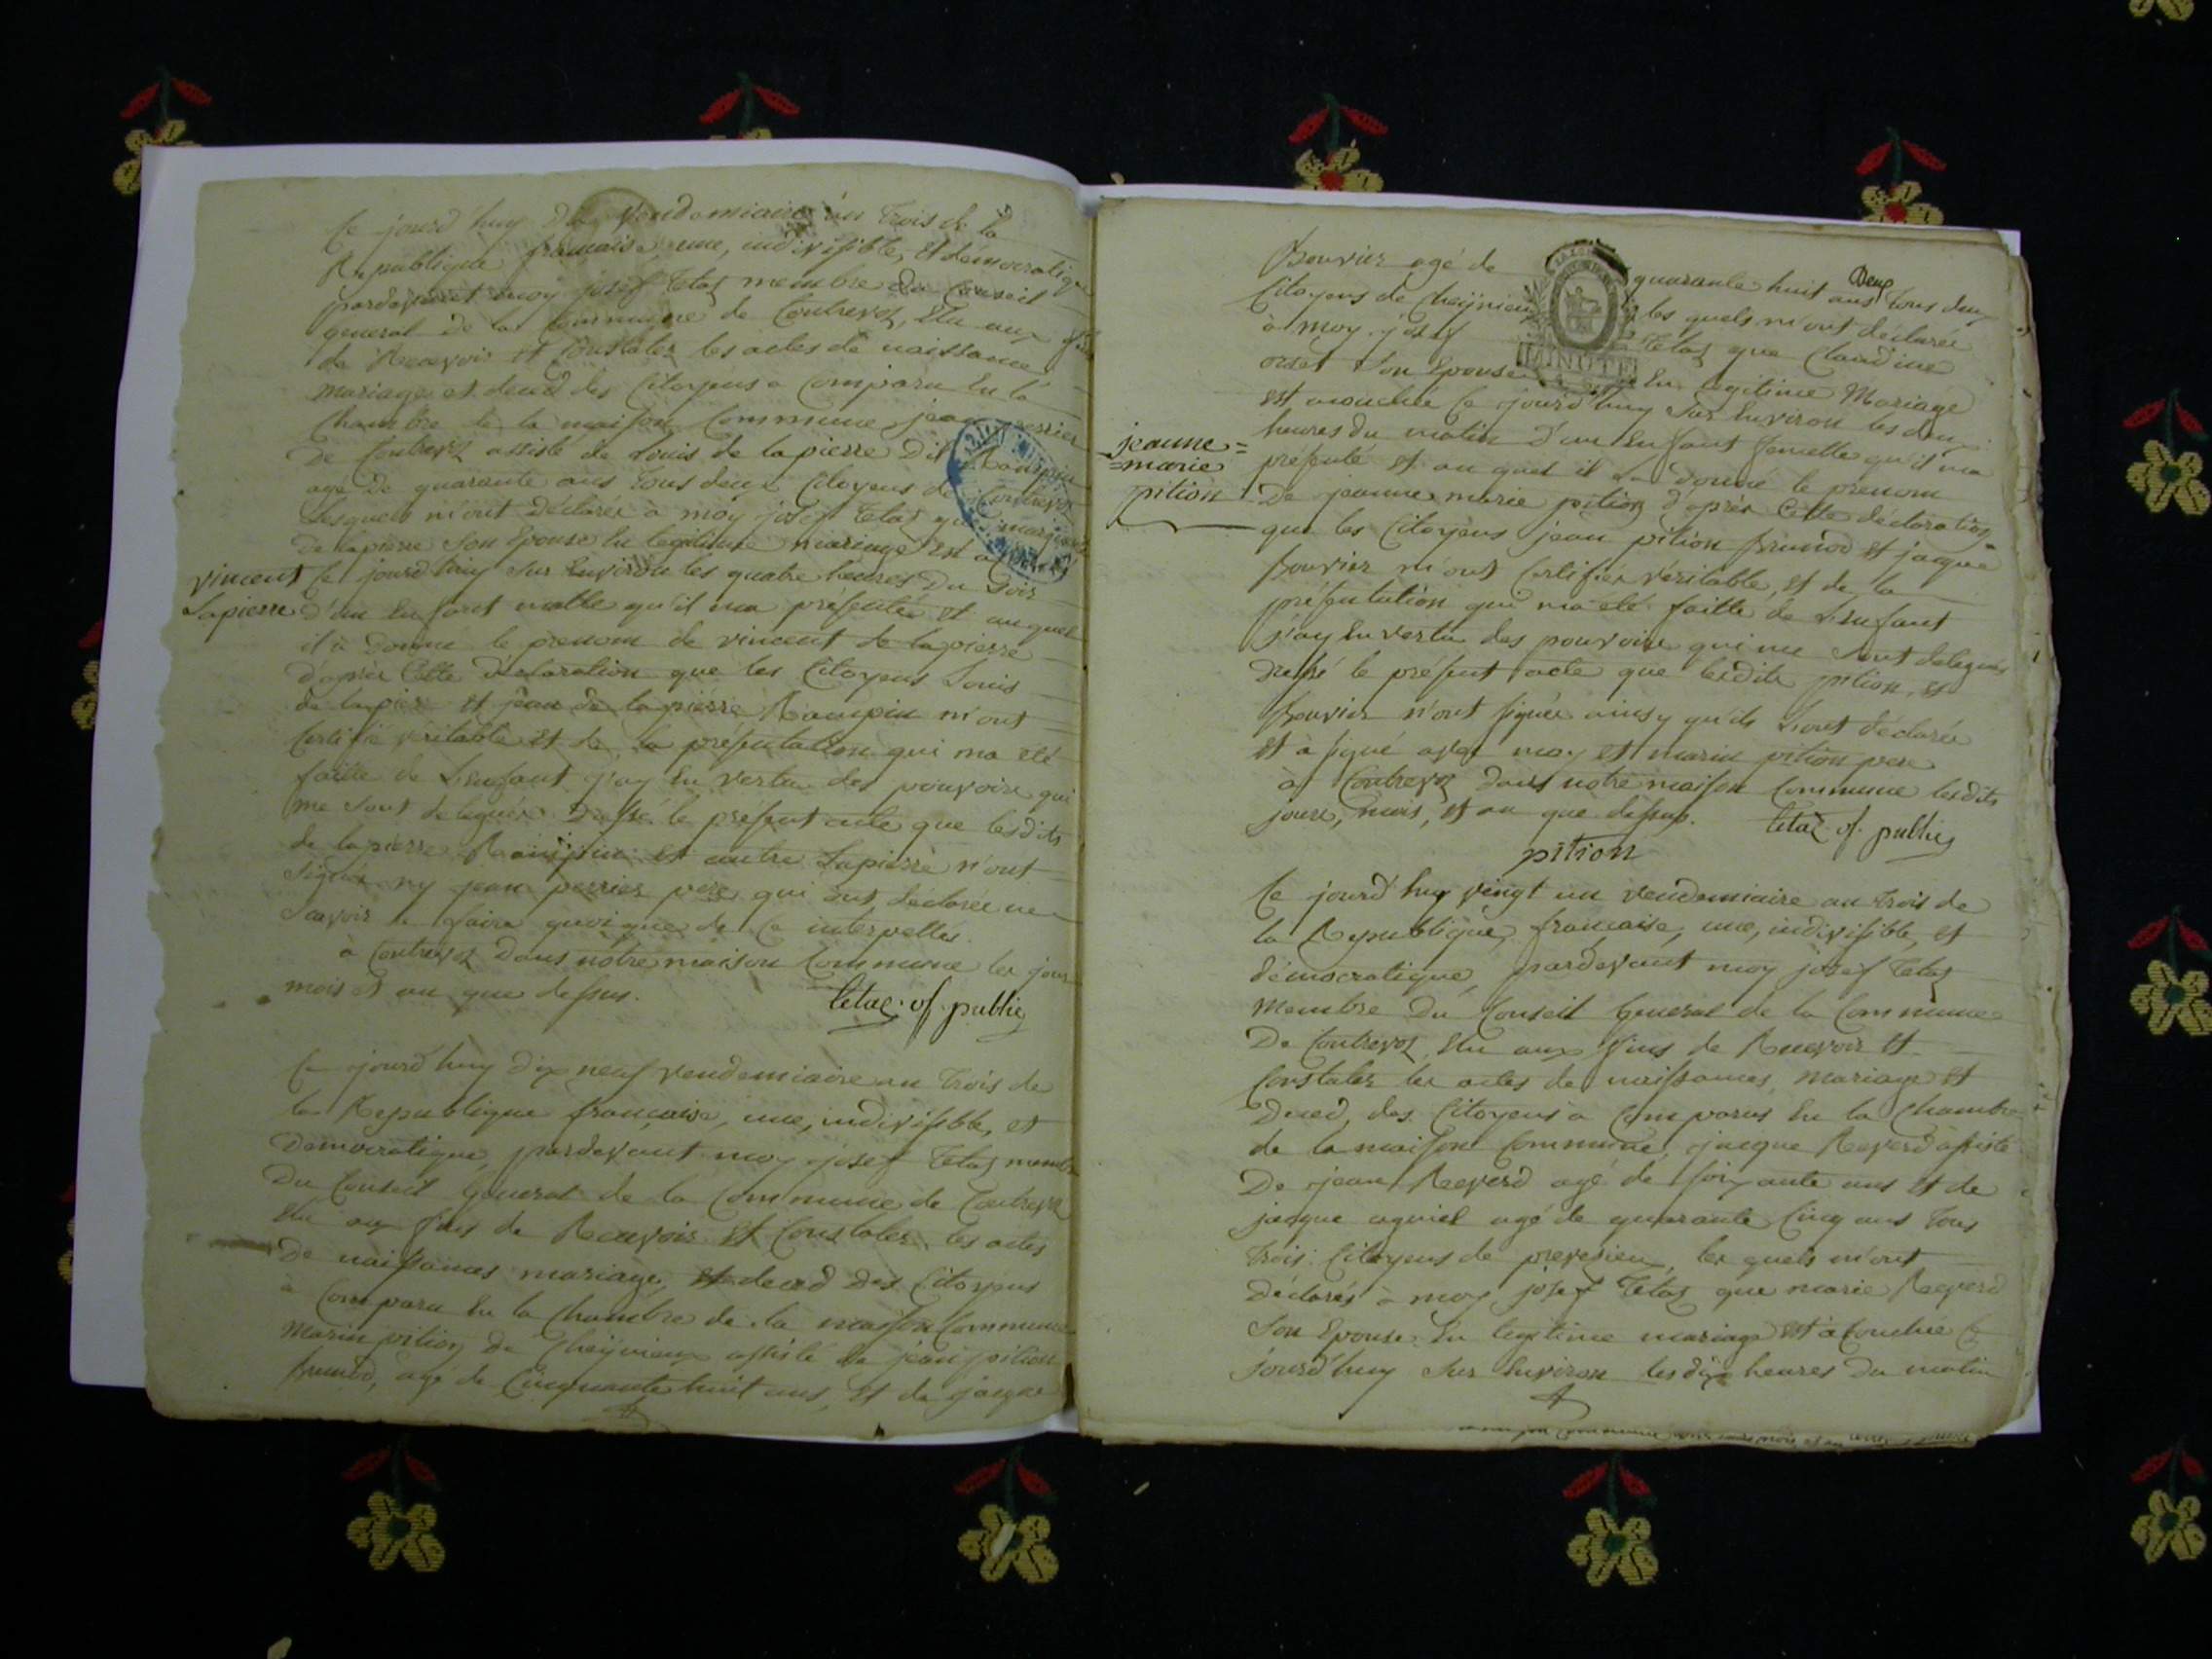 Ce jourd'huy dix Vendemiaire an trois de la
Republique francaise, une, indivisible, et démocratique
pardevant moy josef tetaz membre du Conseil
general de la Commune de Contrevoz, Elu aux fins
de Recevoir et Constater les actes de naissance
mariage et deced des Citoyens a Comparu En la
Chambre de la maison Commune, jean perrier
De Contrevoz assisté de Louis de lapierre Dit
agé De quarante ans tous deux Citoyens de Contrevoz
Lesquels m'ont Déclarée à moy josef tetaz que
De lapierre Son Epouse En legitime mariage Est
vincent
Lapierre
Ce jourd'huy Sur Environ les quatre heures Du Soir
d'un Enfant malle qu'il ma présenté et auquel
il à Donné le prenom de vincent de lapierre
d'après Cette declaration que les Citoyens Louis
de lapierre et jean de lapierre Raimpin m'ont
Certifié véritable et de la présentation qui ma eté
faitte de L'enfant j'ay En vertu des pouvoirs qui
me Sont delegués Dressé le présent acte que lesdits
de lapierre et autre Lapierre n'ont
Signés ny jean perrier pere qui ont déclarée ne
Savoir le faire quoique de Ce interpellés.
à Contrevoz Dans notre maison Commune les jour
mois et an que dessus.
tetaz of. public
Ce jourd'huy Dix neuf vendemiaire an trois de
la Republique francaise, une, indivisible, et
Democratique, pardevant moy josef tetaz membre
Du Conseil General de la Commune de Contrevoz
Elu aux fins de Recevoir et Constater les actes
De naissances mariage, et deced des Citoyens
à Comparu En la Chambre de la maison Commune
Marin pition de Cheÿnieu assisté de jean pition
brunod, agé de Cinquante huit ans, et de jacque
Bouvier agé de quarante huit ans tous deux
Citoyens de Cheÿnieu les quels m'ont déclarée
à moy josef tetaz que Claudine
Son Epouse En legitime Mariage
est acouchée Ce jourd'huy Sur Environ les deux
MINUTE
jeanne=
=marie
pition
heures du matin D'un Enfant femelle qu'il ma
présenté et au quel il a Donné le prenom
De jeanne marie pition d'après Cette déclaration
que les Citoyens jean pition brunod et jacque
Bouvier m'ont Certifiée véritable, et de la
présentation qui ma eté faitte de L'enfant
j'ay En vertu des pouvoirs qui me Sont delegués
dressé le présent acte que lesdits pition, et
Bouvier n'ont signée ainsy qu'ils L'ont déclarée
et à signé avec moy et marin pition pere
à Contrevoz dans notre maison Commune lesdits
jours, mois, et an que dessus. tetaz of. public
pition
Ce jourd'huy vingt un vendemiaire an trois de
la Republique francaise, une, indivisible, et
démocratique, pardevant moy josef tetaz
Membre Du Conseil General de la Commune
De Contrevoz, Elu aux fins de Recevoir et
Constater les actes de naissances, mariage et
Deced, des Citoyens à Comparus En la Chambre
de la maison Commune, jacque Reverd assisté
De jean Reverd agé de soixante ans et de
jacque aguiel agé de quarante Cinq ans tous
trois Citoyens de preveyzieu, les quels m'ont
Déclarés à moy josef tetaz que marie Reverd
Son Epouse En legitime mariage est acouchée Ce
jourd'huy Sur Environ les dix heures Du matin